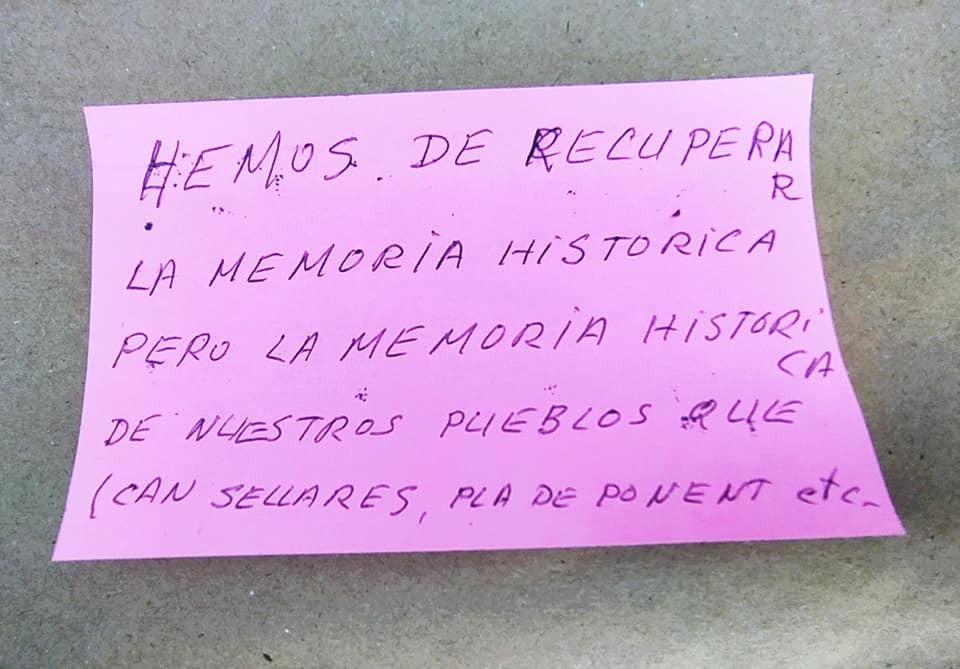 HEMOS. DE RECUPERA
R
LA MEMORIA HISTORICA
PERO LA MEMORIA HISTORI
CA
DE NUESTROS PUEBLOS QUE
(CAN SELLARES, PLA DE PONENT etc.